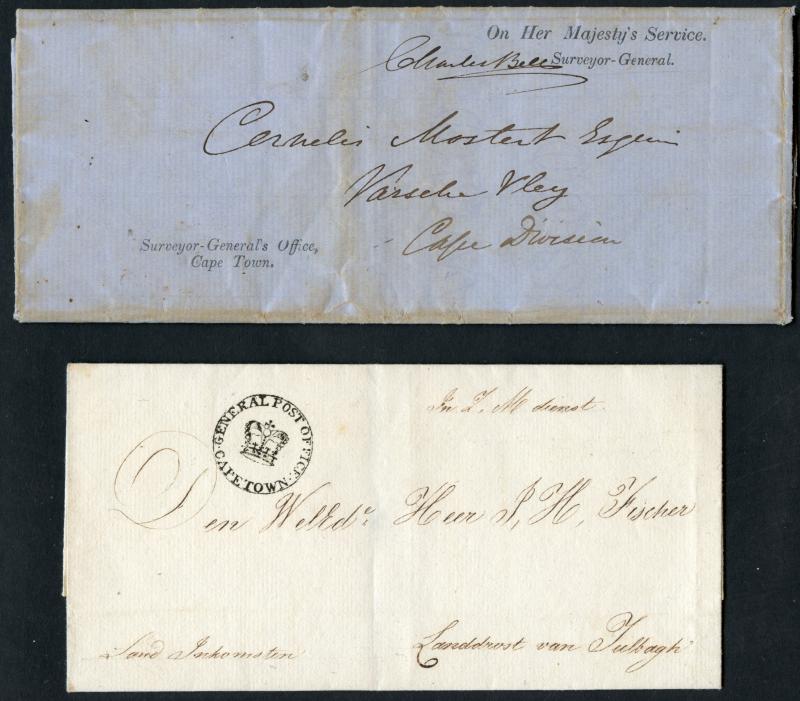 On Her Majesty's Service.
Charles Bell Surveyor-General.
Cornelis Mostert Esquire
Varsche Vley
Cape Division
Surveyor-General's Office,
Cape Town.
GENERAL POST OFFICE
CAPE TOWN
In Z. M dienst.
Den Weled.r Heer J, H, Fischer
Land Inkomsten
Landdrost van Tulbagh